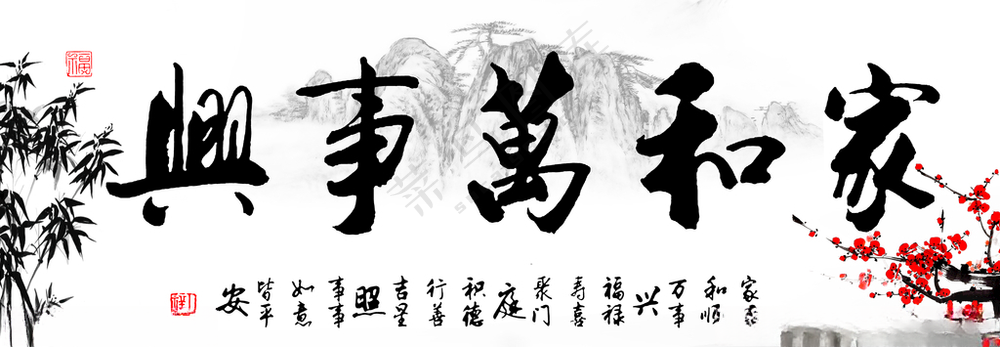 家和萬事興
家家和順万事兴福禄寿喜聚门庭积德行善吉星照事事如意皆平安
福